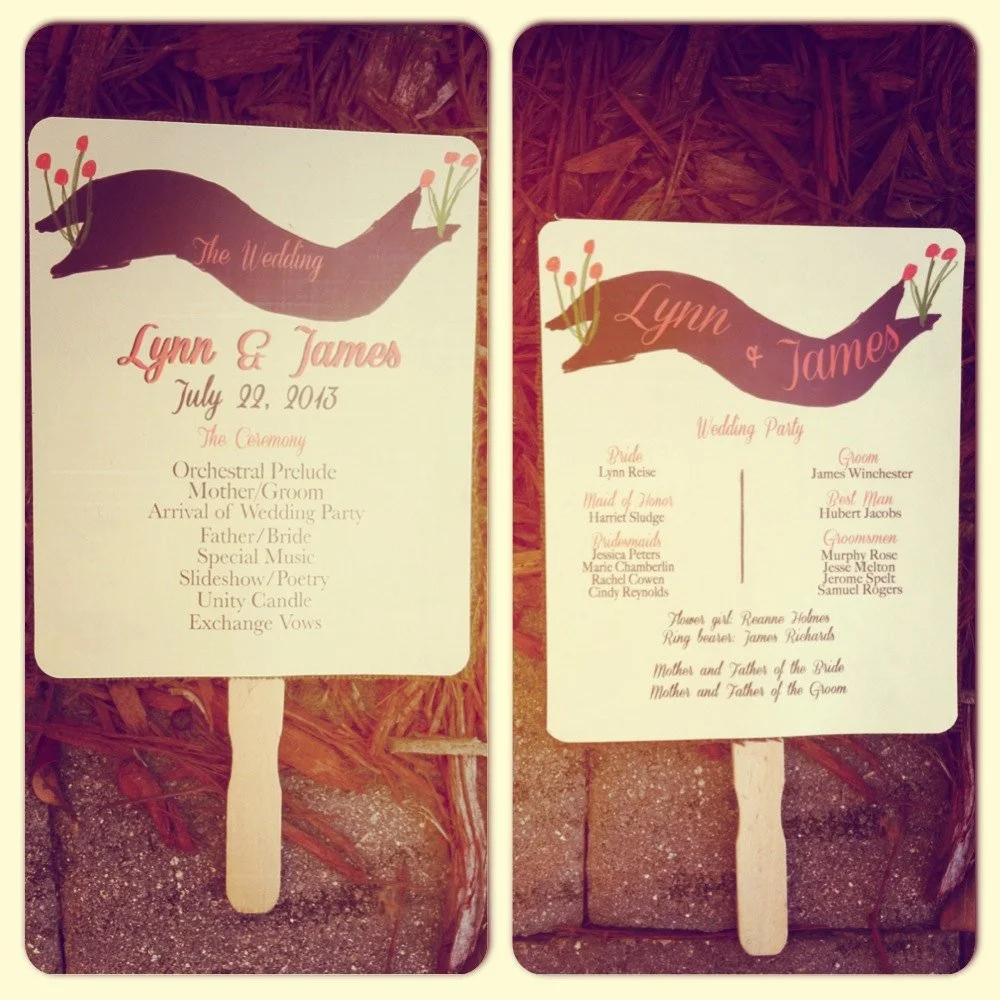 The Wedding
Lynn & James
July 22, 2013
The Ceremony
Orchestral Prelude
Mother/Groom
Arrival of Wedding Party
Father/Bride
Special Music
Slideshow/Poetry
Unity Candle
Exchange Vows
Lynn
& James
Wedding Party
Bride
Lynn Reise
Maid of Honor
Harriet Sludge
Bridesmaids
Jessica Peters
Marie Chamberlin
Rachel Cowen
Cindy Reynolds
Groom
James Winchester
Best Man
Hubert Jacobs
Groomsmen
Murphy Rose
Jesse Melton
Jerome Spelt
Samuel Rogers
Flower girl: Reanne Holmes
Ring bearer: James Richards
Mother and Father of the Bride
Mother and Father of the Groom